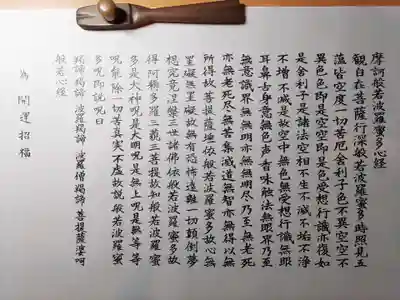 摩訶般若波羅蜜多心経
観自在菩薩行深般若波羅蜜多時照見五
蘊皆空度一切苦厄舎利子色不異空空不
異色色即是空空即是色受想行識亦復如
是舎利子是諸法空相不生不滅不垢不浄
不増不減是故空中無色無受想行識無眼
耳鼻舌身意無色声香味触法無眼界乃至
無意識界無無明亦無無明尽乃至無老死
亦無老死尽無苦集滅道無智亦無得以無
所得故菩提薩埵依般若波羅蜜多故心無
罣礙無罣礙故無有恐怖遠離一切顛倒夢
想究竟涅槃三世諸仏依般若波羅蜜多故
得阿耨多羅三藐三菩提故知般若波羅蜜
多是大神呪是大明呪是無上呪是無等等
呪能除一切苦真実不虚故説般若波羅蜜
多呪即説呪曰
羯諦羯諦 波羅羯諦 波羅僧羯諦 菩提薩婆訶
般若心経
為 開運招福